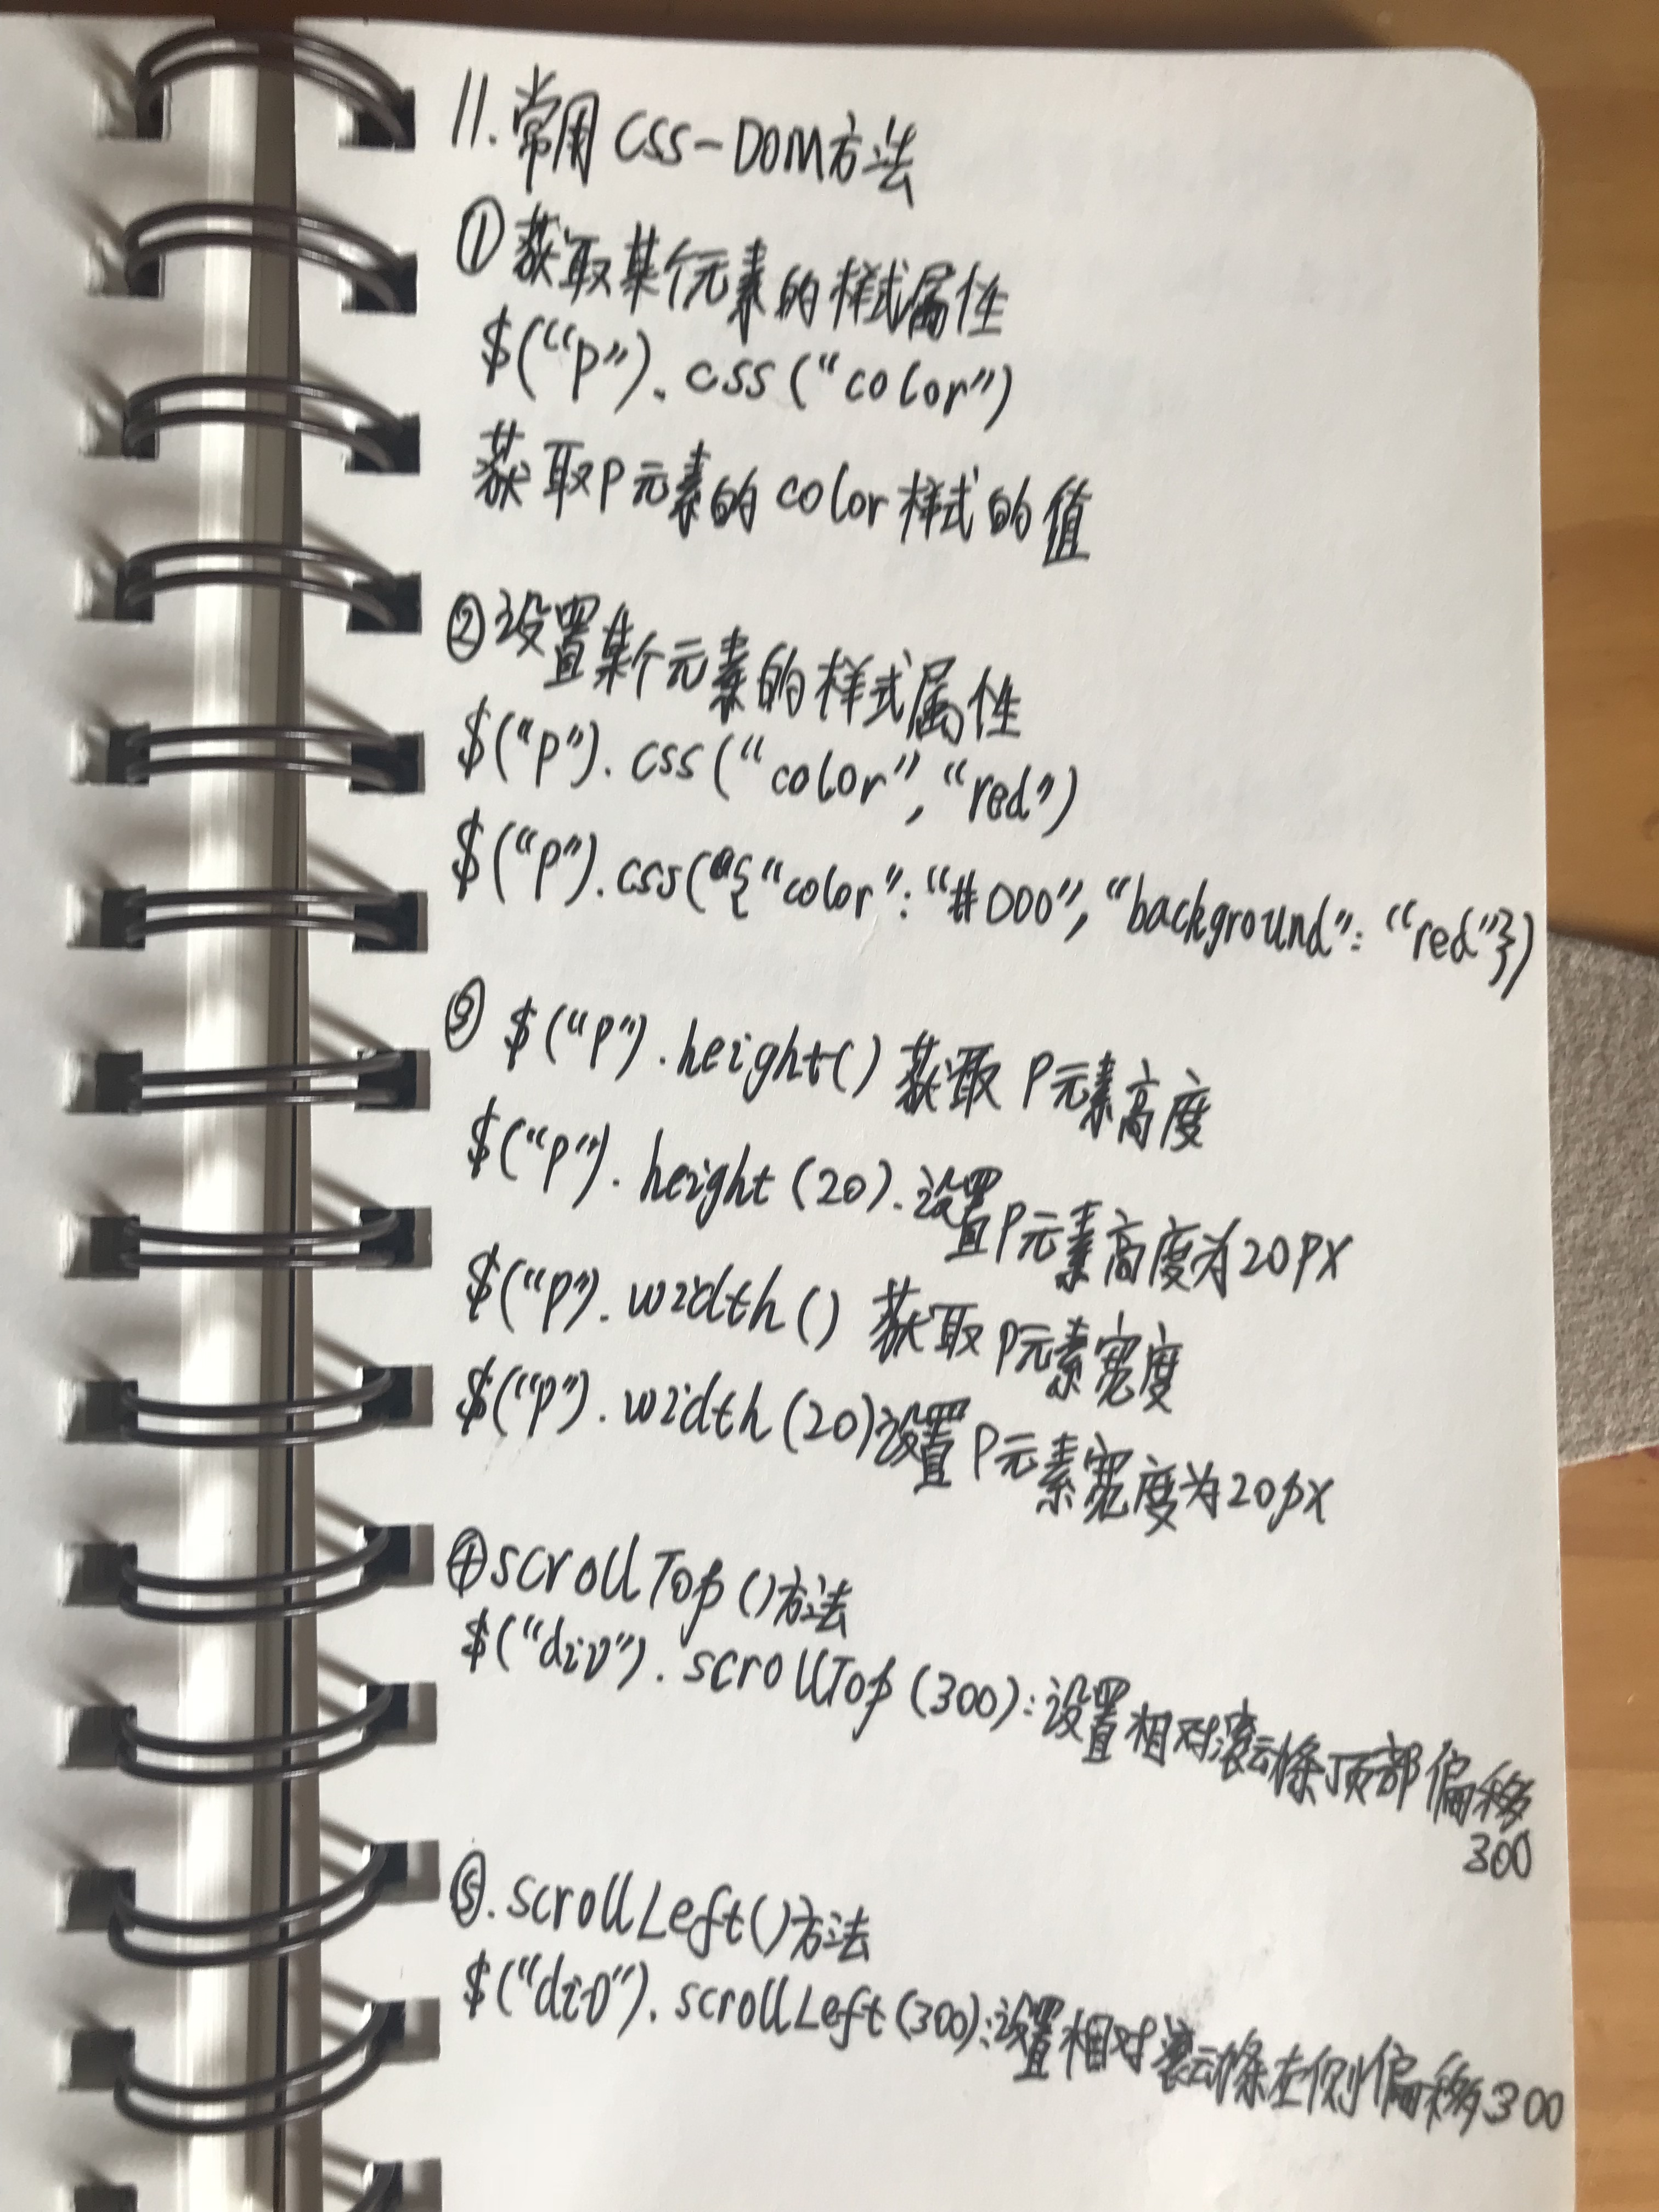 11.常用CSS-DOM方法
①获取某个元素的样式属性
$(“p”).css(“color”)
获取P元素的color样式的值
②设置某个元素的样式属性
$(“p”).css(“color”,“red”)
$(“p”).css({“color”:“#000”,“background”:“red”})
③ $(“p”).height() 获取P元素高度
$(“p”).height(20).设置P元素高度为20px
$(“p”).width() 获取P元素宽度
$(“p”).width(20)设置P元素宽度为20px
④scrollTop()方法
$(“div”).scrollTop(300):设置相对滚动条顶部偏移
300
⑤.scrollLeft()方法
$(“div”).scrollLeft(300):设置相对滚动条左侧偏移300